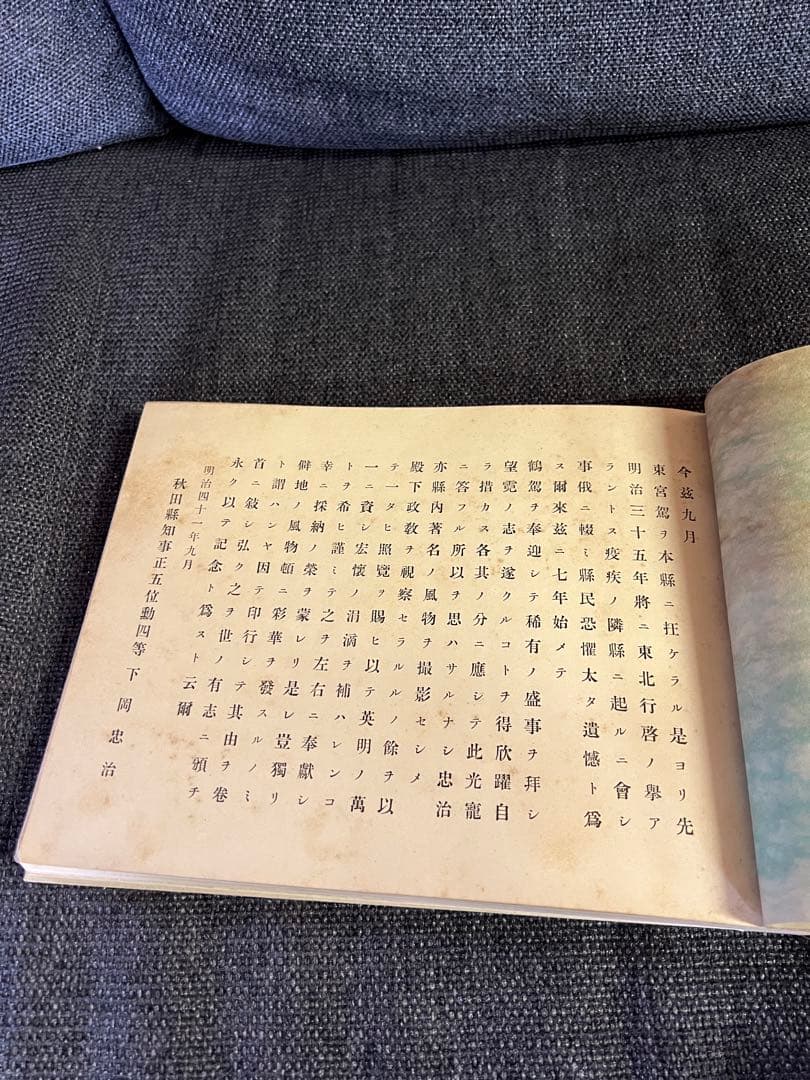 今茲九月
東宮駕ヲ本縣ニ抂ケラル是ヨリ先
明治三十五年將ニ東北行啓ノ擧ア
ラントス疫疾ノ隣縣ニ起ルニ會シ
事俄ニ輟ミ縣民恐懼太タ遺憾ト爲
ス爾來茲ニ七年始メテ
鶴駕ヲ奉迎シテ稀有ノ盛事ヲ拜シ
望霓ノ志ヲ遂クルコトヲ得欣躍自
ラ措カス各其ノ分ニ應シテ此光寵
ニ答フル所以ヲ思ハサルナシ忠治
亦縣內著名ノ風物ヲ撮影セシメ
殿下政敎ヲ視察セラルルノ餘ヲ以
テ一タヒ照覽ヲ賜ヒ以テ英明ノ萬
一ニ資シ宏懷ノ涓滴ヲ補ハレンコ
トヲ希ヒ謹ミテ之ヲ左右ニ奉獻シ
幸ニ採納ノ榮ヲ蒙レリ是レ豈獨リ
僻地ノ風物頓ニ彩華ヲ發スルノミ
ト謂ハンヤ因テ印行シテ其由ヲ卷
首ニ敍シ弘ク之ヲ世ノ有志ニ頒チ
永ク以テ記念ト爲スト云爾
明治四十一年九月
秋田縣知事正五位勳四等下岡忠治